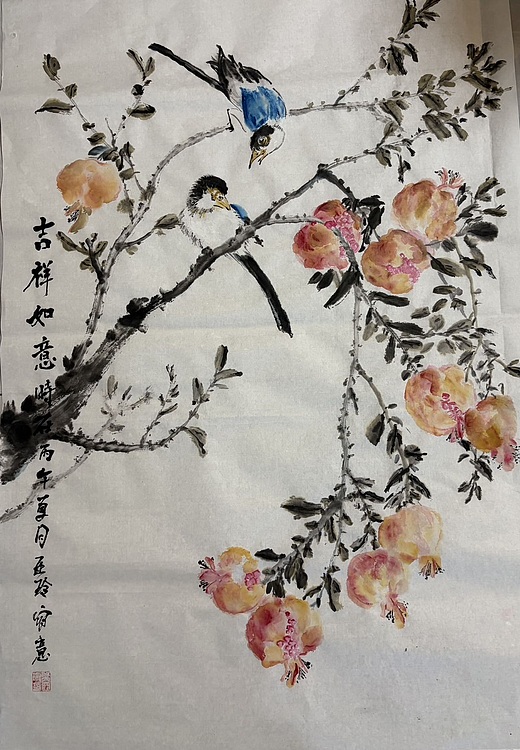 吉祥如意時在丙午夏月亚玲寫意